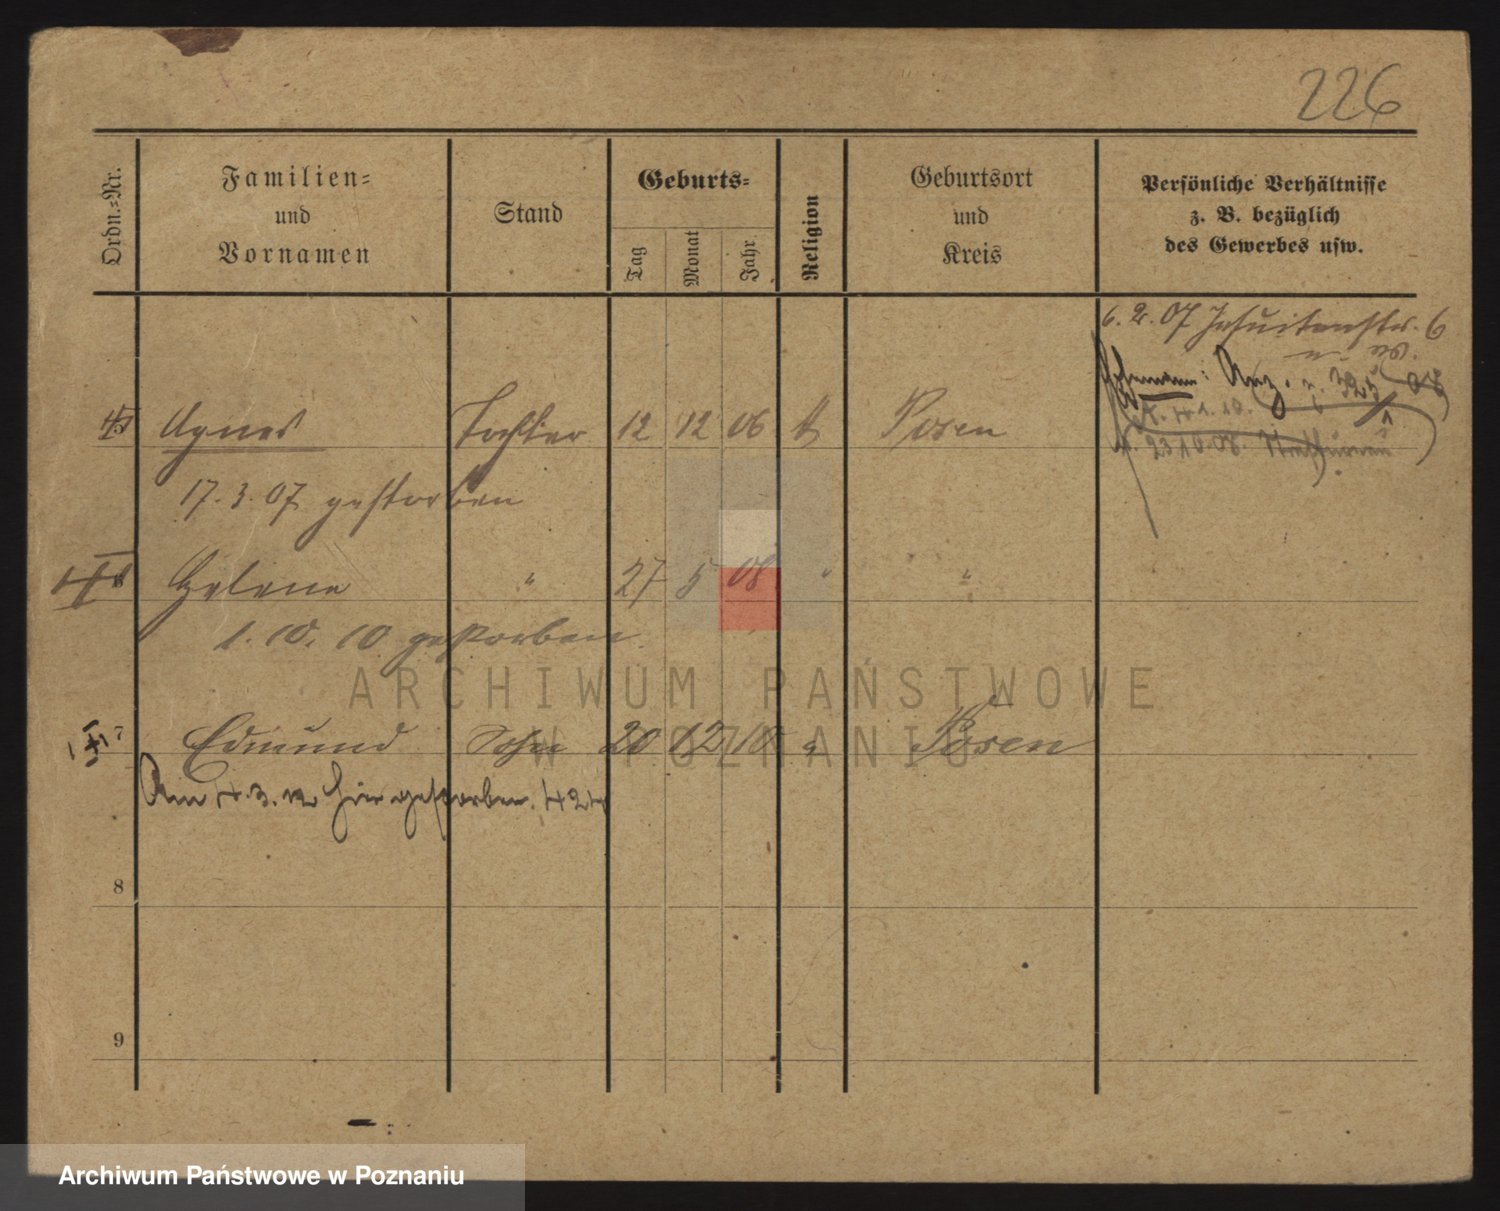 226
Ordn.-Nr.
Familien-
und
Vornamen
Stand
Geburts-
Tag
Monat
Jahr
Religion
Geburtsort
und
Kreis
Persönliche Verhältnisse
z. B. bezüglich
des Gewerbes usw.
6. 2. 07 Jesuitenstr. 6
5 Agnes Tochter 12 12 06 k Posen
17. 3. 07 gestorben
6 Helene " 27 5 08 " "
1. 10. 10 gestorben
ARCHIWUM PAŃSTWOWE
W POZNANIU
7 Edmund Sohn 20 12 10 " Posen
Am 4. 3. 12 hier gestorben. 424
8
9
Archiwum Państwowe w Poznaniu